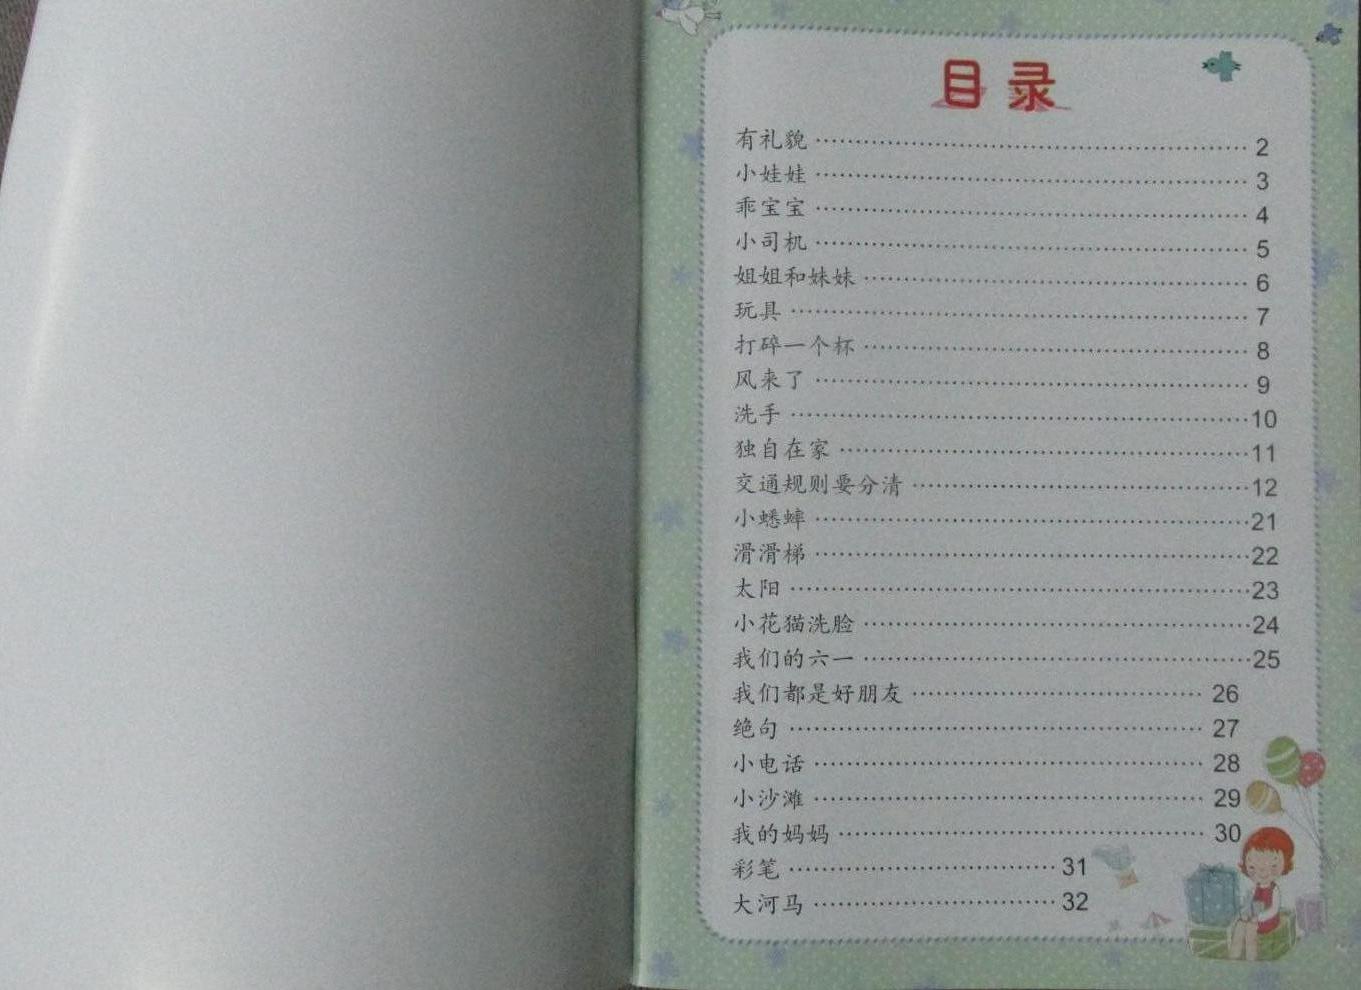 目录
有礼貌 …… 2
小娃娃 …… 3
乖宝宝 …… 4
小司机 …… 5
姐姐和妹妹 …… 6
玩具 …… 7
打碎一个杯 …… 8
风来了 …… 9
洗手 …… 10
独自在家 …… 11
交通规则要分清 …… 12
小蟋蟀 …… 21
滑滑梯 …… 22
太阳 …… 23
小花猫洗脸 …… 24
我们的六一 …… 25
我们都是好朋友 …… 26
绝句 …… 27
小电话 …… 28
小沙滩 …… 29
我的妈妈 …… 30
彩笔 …… 31
大河马 …… 32